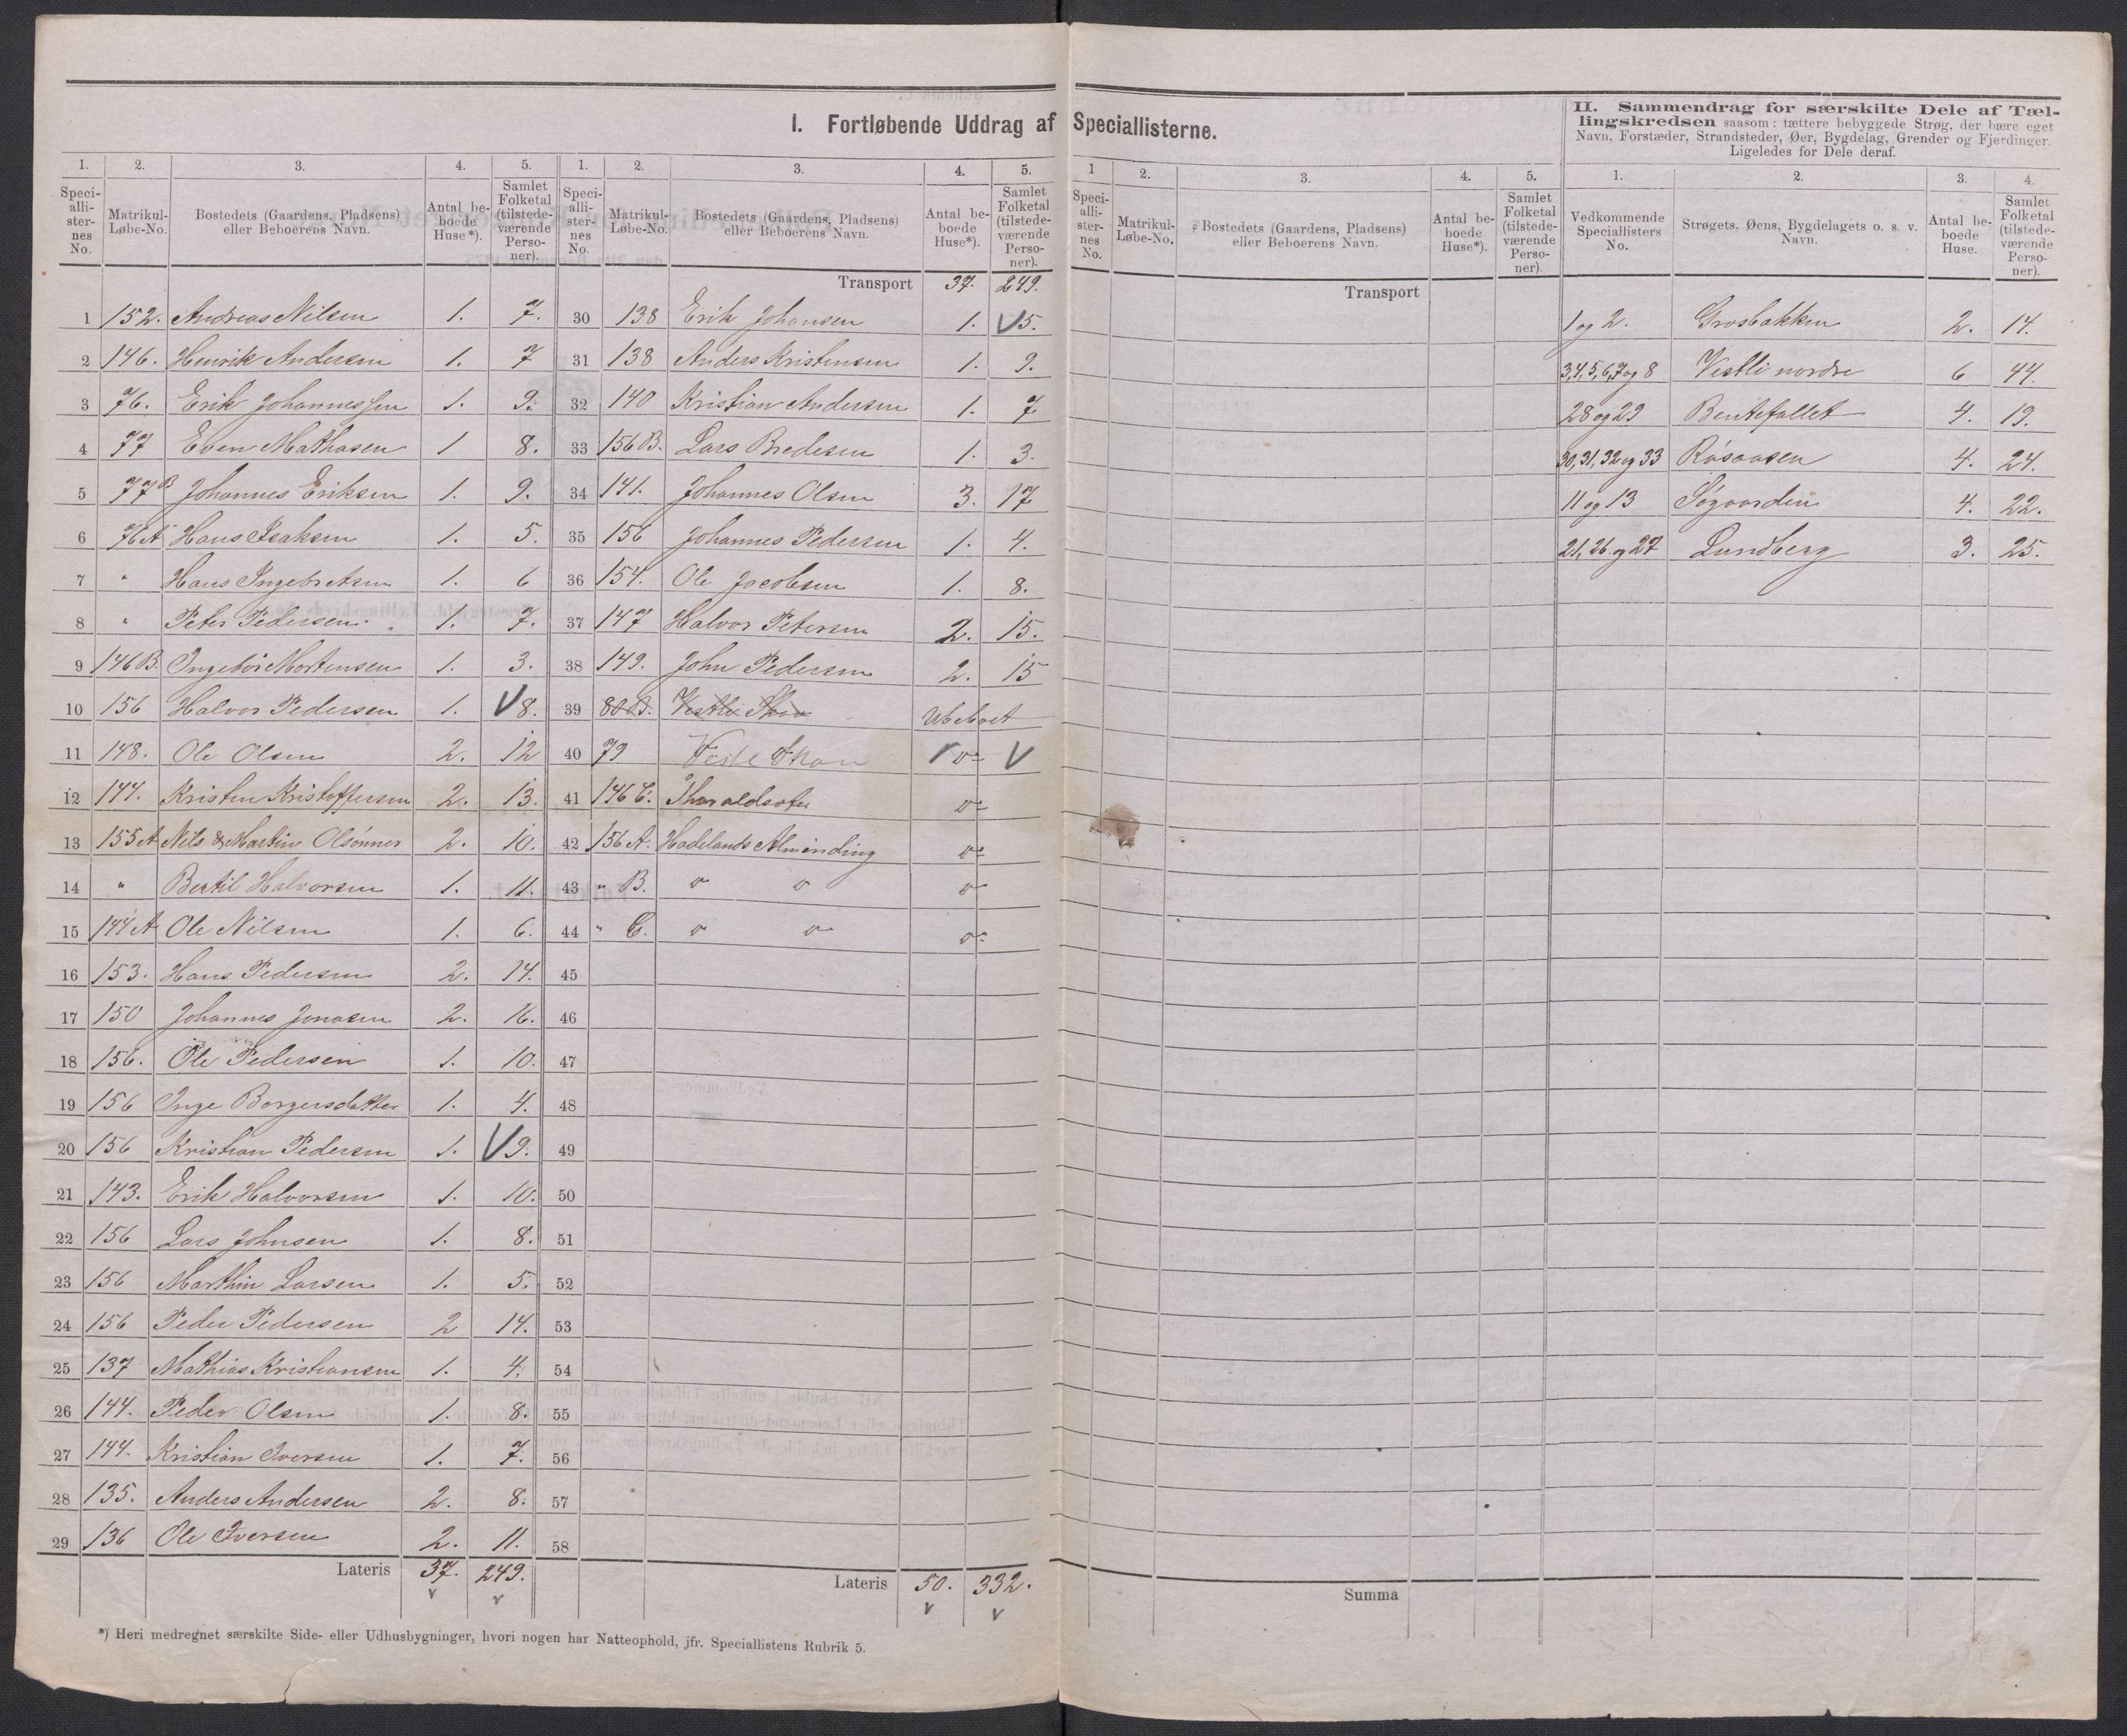 I. Fortløbende Uddrag af Speciallisterne.
II. Sammendrag for særskilte Dele af Tæl-
lingskredsen saasom: tættere bebyggede Strøg, der bære eget
Navn, Forstæder, Strandsteder, Øer, Bygdelag, Grender og Fjerdinger.
Ligeledes for Dele deraf.
1. 2. 3. 4. 5. 1. 2. 3. 4. 5. 1 2. 3. 4. 5. 1. 2. 3. 4.
Speci-alli-ster-nes No. Matrikul-Løbe-No. Bostedets (Gaardens, Pladsens) eller Beboerens Navn. Antal be-boede Huse*). Samlet Folketal (tilstede-værende Perso-ner).
Speci-alli-ster-nes No. Matrikul-Løbe-No. Bostedets (Gaardens, Pladsens) eller Beboerens Navn. Antal be-boede Huse*). Samlet Folketal (tilstede-værende Perso-ner).
Speci-alli-ster-nes No. Matrikul-Løbe-No. Bostedets (Gaardens, Pladsens) eller Beboerens Navn. Antal be-boede Huse*). Samlet Folketal (tilstede-værende Perso-ner).
Vedkommende Speciallisters No. Strøgets, Øens, Bygdelagets o. s. v. Navn. Antal be-boede Huse. Samlet Folketal (tilstede-værende Perso-ner).
1 152. Andreas Nilsen 1. 7.
2 146. Henrik Andersen 1. 7
3 76. Erik Johannessen 1. 9.
4 77 Even Mathasen 1 8.
5 77B Johannes Eriksen 1. 9.
6 76A Hans Isaksen 1. 5.
7 " Hans Ingebretsen 1. 6
8 " Peter Pedersen 1. 7.
9 146B. Ingebor Mortensen 1. 3.
10 156 Halvor Pedersen 1. V 8.
11 148. Ole Olsen 2. 12
12 144. Kristen Kristoffersen 2. 13.
13 155A Nils & Martin Olsønner 2. 10.
14 " Bertil Halvorsen 1. 11.
15 144A Ole Nilsen 1. 6.
16 153. Hans Pedersen 2. 14.
17 150 Johannes Jonasen 2. 16.
18 156. Ole Pedersen 1. 10.
19 156 Inge Borgersdatter 1. 4.
20 156 Kristian Pedersen 1. V 9.
21 143. Erik Halvorsen 1. 10.
22 156 Lars Johnsen 1. 8.
23 156 Marthin Larsen 1. 5.
24 156 Peder Pedersen 2 14.
25 137 Mathias Kristiansen 1. 4.
26 144. Peder Olsen 1. 8.
27 144. Kristian Iversen 1. 7.
28 135. Anders Andersen 2. 8.
29 136 Ole Iversen 2. 11.
Lateris 37. 249.
v v
Transport 37. 249.
30 138 Erik Johansen 1. V 5.
31 138 Anders Kristensen 1. 9.
32 140 Kristian Andersen 1. 7
33 156B. Lars Bredesen 1. 3.
34 141. Johannes Olsen 3. 17
35 156 Johannes Pedersen 1. 4.
36 154. Ole Jacobsen 1. 8.
37 147 Halvor Petersen 2. 15.
38 149. John Pedersen 2. 15
39 80B. Vestli Skov Ubeboet
40 79 Vestli Skov V
41 146C.
42 156A. Hadelands Almending
43 " B.
44 " C.
45
46
47
48
49
50
51
52
53
54
55
56
57
58
Lateris 50. 332.
v v
Transport
Summa
1 og 2. Grosbakken 2. 14.
3,4,5,6,7 og 8 Vestli nordre 6 44.
28 og 29 Bentefallet 4. 19.
30,31,32 og 33 Røsaasen 4. 24.
11 og 13 Søgaarden 4. 22.
21,26 og 27 Lundberg 3. 25.
*) Heri medregnet særskilte Side- eller Udhusbygninger, hvori nogen har Natteophold, jfr. Speciallistens Rubrik 5.